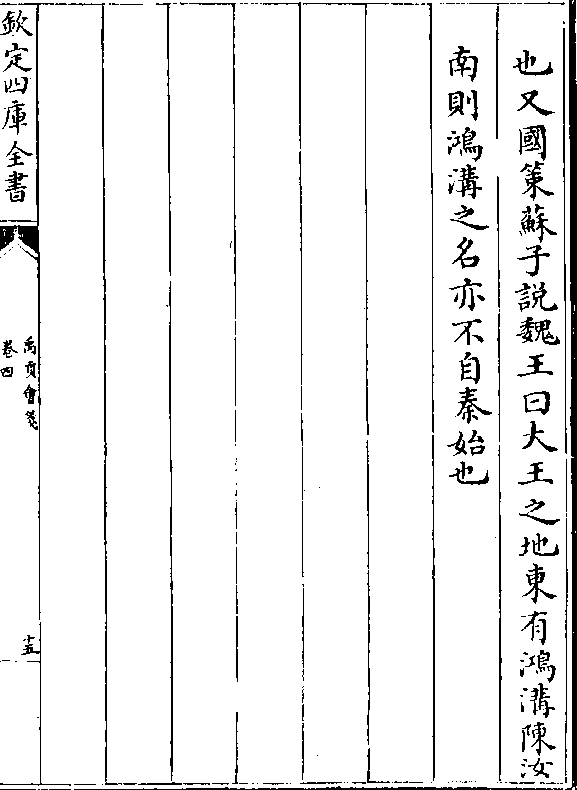 也又國策蘇子説魏王曰大王之地東有鴻溝陳汝
南則鴻溝之名亦不自秦始也
欽定四庫全書
禹貢會箋
卷四
十五